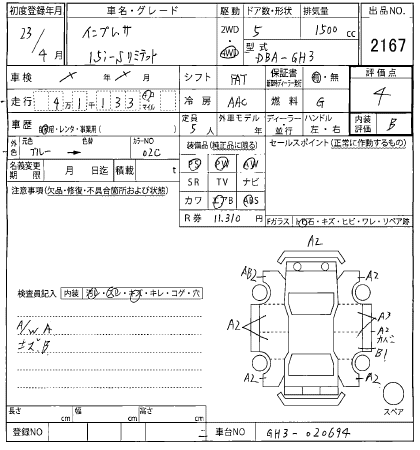 初度登録年月 車名・グレード 駆動 ドア数・形状 排気量 出品NO.
23/4月 インプレサ 2WD 4WD 5 1500 cc 2167
1.5i-Sリミテッド 型式 DBA-GH3
車検 × 年 × 月 シフト FAT 保証書 有・無 評価点
走行 4万1千133 Km マイル 冷房 AAC 燃料 G 4
車歴 自家用・レンタ・事業用( ) 定員 5人 外車モデル 年 ディーラー・並行 ハンドル 左・右 内装評価 B
外色 元色 ブルー → 色替 カラーNO 02C 装備品(純正品に限る) セールスポイント(正常に作動するもの)
名義変更期限 月 日迄 積載 t PS PW AW
注意事項(欠品・修復・不具合箇所および状態) SR TV ナビ
カワ エアB ABS
R券 11.310円 Fガラス 飛石・キズ・ヒビ・ワレ・リペア跡
A2
AB2 A2
検査員記入 内装 汚レ・スレ・キズ・キレ・コゲ・穴
A2 A3
A/W A A2
キズ.B B1
A2 A2
A2
スペア
長さ cm 幅 cm 高さ cm
登録NO 車台NO GH3-020694